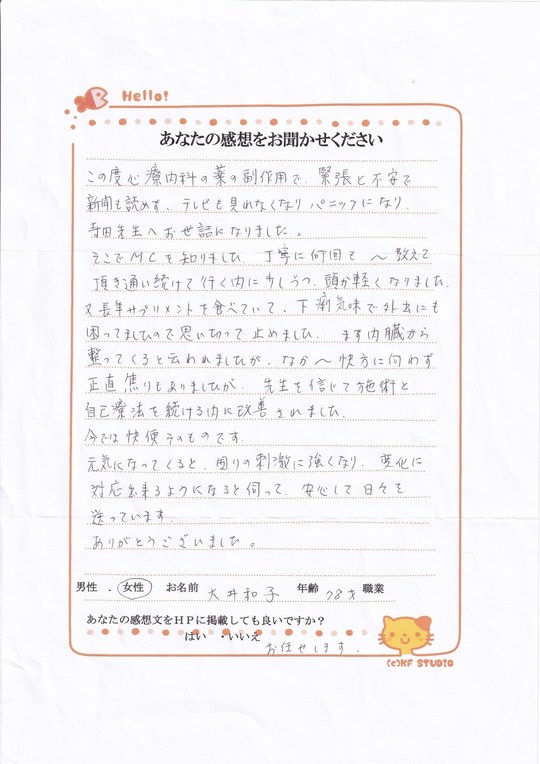 Hello!
あなたの感想をお聞かせください
この度心療内科の薬の副作用で、緊張と不安で
新聞も読めず、テレビも見れなくなりパニックになり、
寺田先生へお世話になりました。
そこでMCを知りました。丁寧に何回も〜教えて
頂き通い続けて行く内に少しづつ頭が軽くなりました。
又長年サプリメントを食べていて、下痢気味で外出にも
困ってましたので思い切って止めました。まず内臓から
整ってくると云われましたが、なか〜快方に向わず
正直焦りもありましたが、先生を信じて施術と
自己療法を続ける内に改善されました。
今では快便そのものです。
元気になってくると、回りの刺激に強くなり、変化に
対応出来るようになると伺って、安心して日々を
送っています。
ありがとうございました。
男性 ・ 女性 お名前 大井和子 年齢 78才 職業
あなたの感想文をHPに掲載しても良いですか？
はい ・いいえ
お任せします。
(c)KF STUDIO